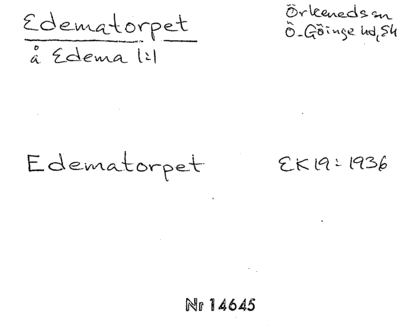 Edematorpet
å Edema 1:1
Örkeneds sn
Ö. Göinge hd, Sk
Edematorpet
EK 19: 1936
Nr 14645